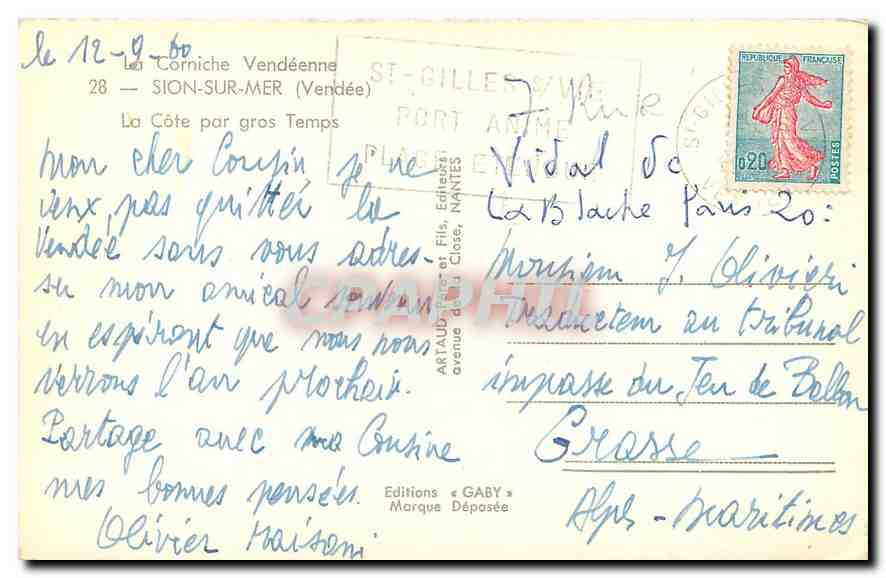 le 12-9-60
La Corniche Vendéenne
28 — SION-SUR-MER (Vendée)
La Côte par gros Temps
Mon cher Cousin je ne
veux pas quitter la
Vendée sans vous adres-
ser mon amical
en espérant que nous nous
verrons l'an prochain.
Partage avec ma Cousine
mes bonnes pensées
Olivier
Editions « GABY »
Marque Déposée
ARTAUD Père et Fils, Editeurs
avenue de la Close, NANTES
ST-GILLES S/ VIE
PORT ANIMÉ
PLAGE
ST-GIL
REPUBLIQUE FRANÇAISE
0,20
POSTES
7 Rue
Vidal de
La Blache Paris 20:
Monsieur J. Olivieri
au tribunal
impasse du Jeu de Ballon
Grasse
Alpes-Maritimes
CPAPHIL